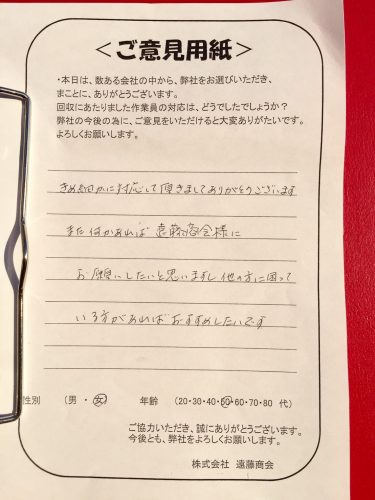 ＜ご意見用紙＞
・本日は、数ある会社の中から、弊社をお選びいただき、
まことに、ありがとうございます。
回収にあたりました作業員の対応は、どうでしたでしょうか？
弊社の今後の為に、ご意見をいただけると大変ありがたいです。
よろしくお願いします。
きめ細かに対応して頂きましてありがとうございます
また何かあれば遠藤商会様に
お願いしたいと思いますし他の方に困って
いる方があればおすすめしたいです
性別 （男・女） 年齢 （20・30・40・50・60・70・80 代）
ご協力いただき、誠にありがとうございます。
今後とも、弊社をよろしくお願いします。
株式会社 遠藤商会